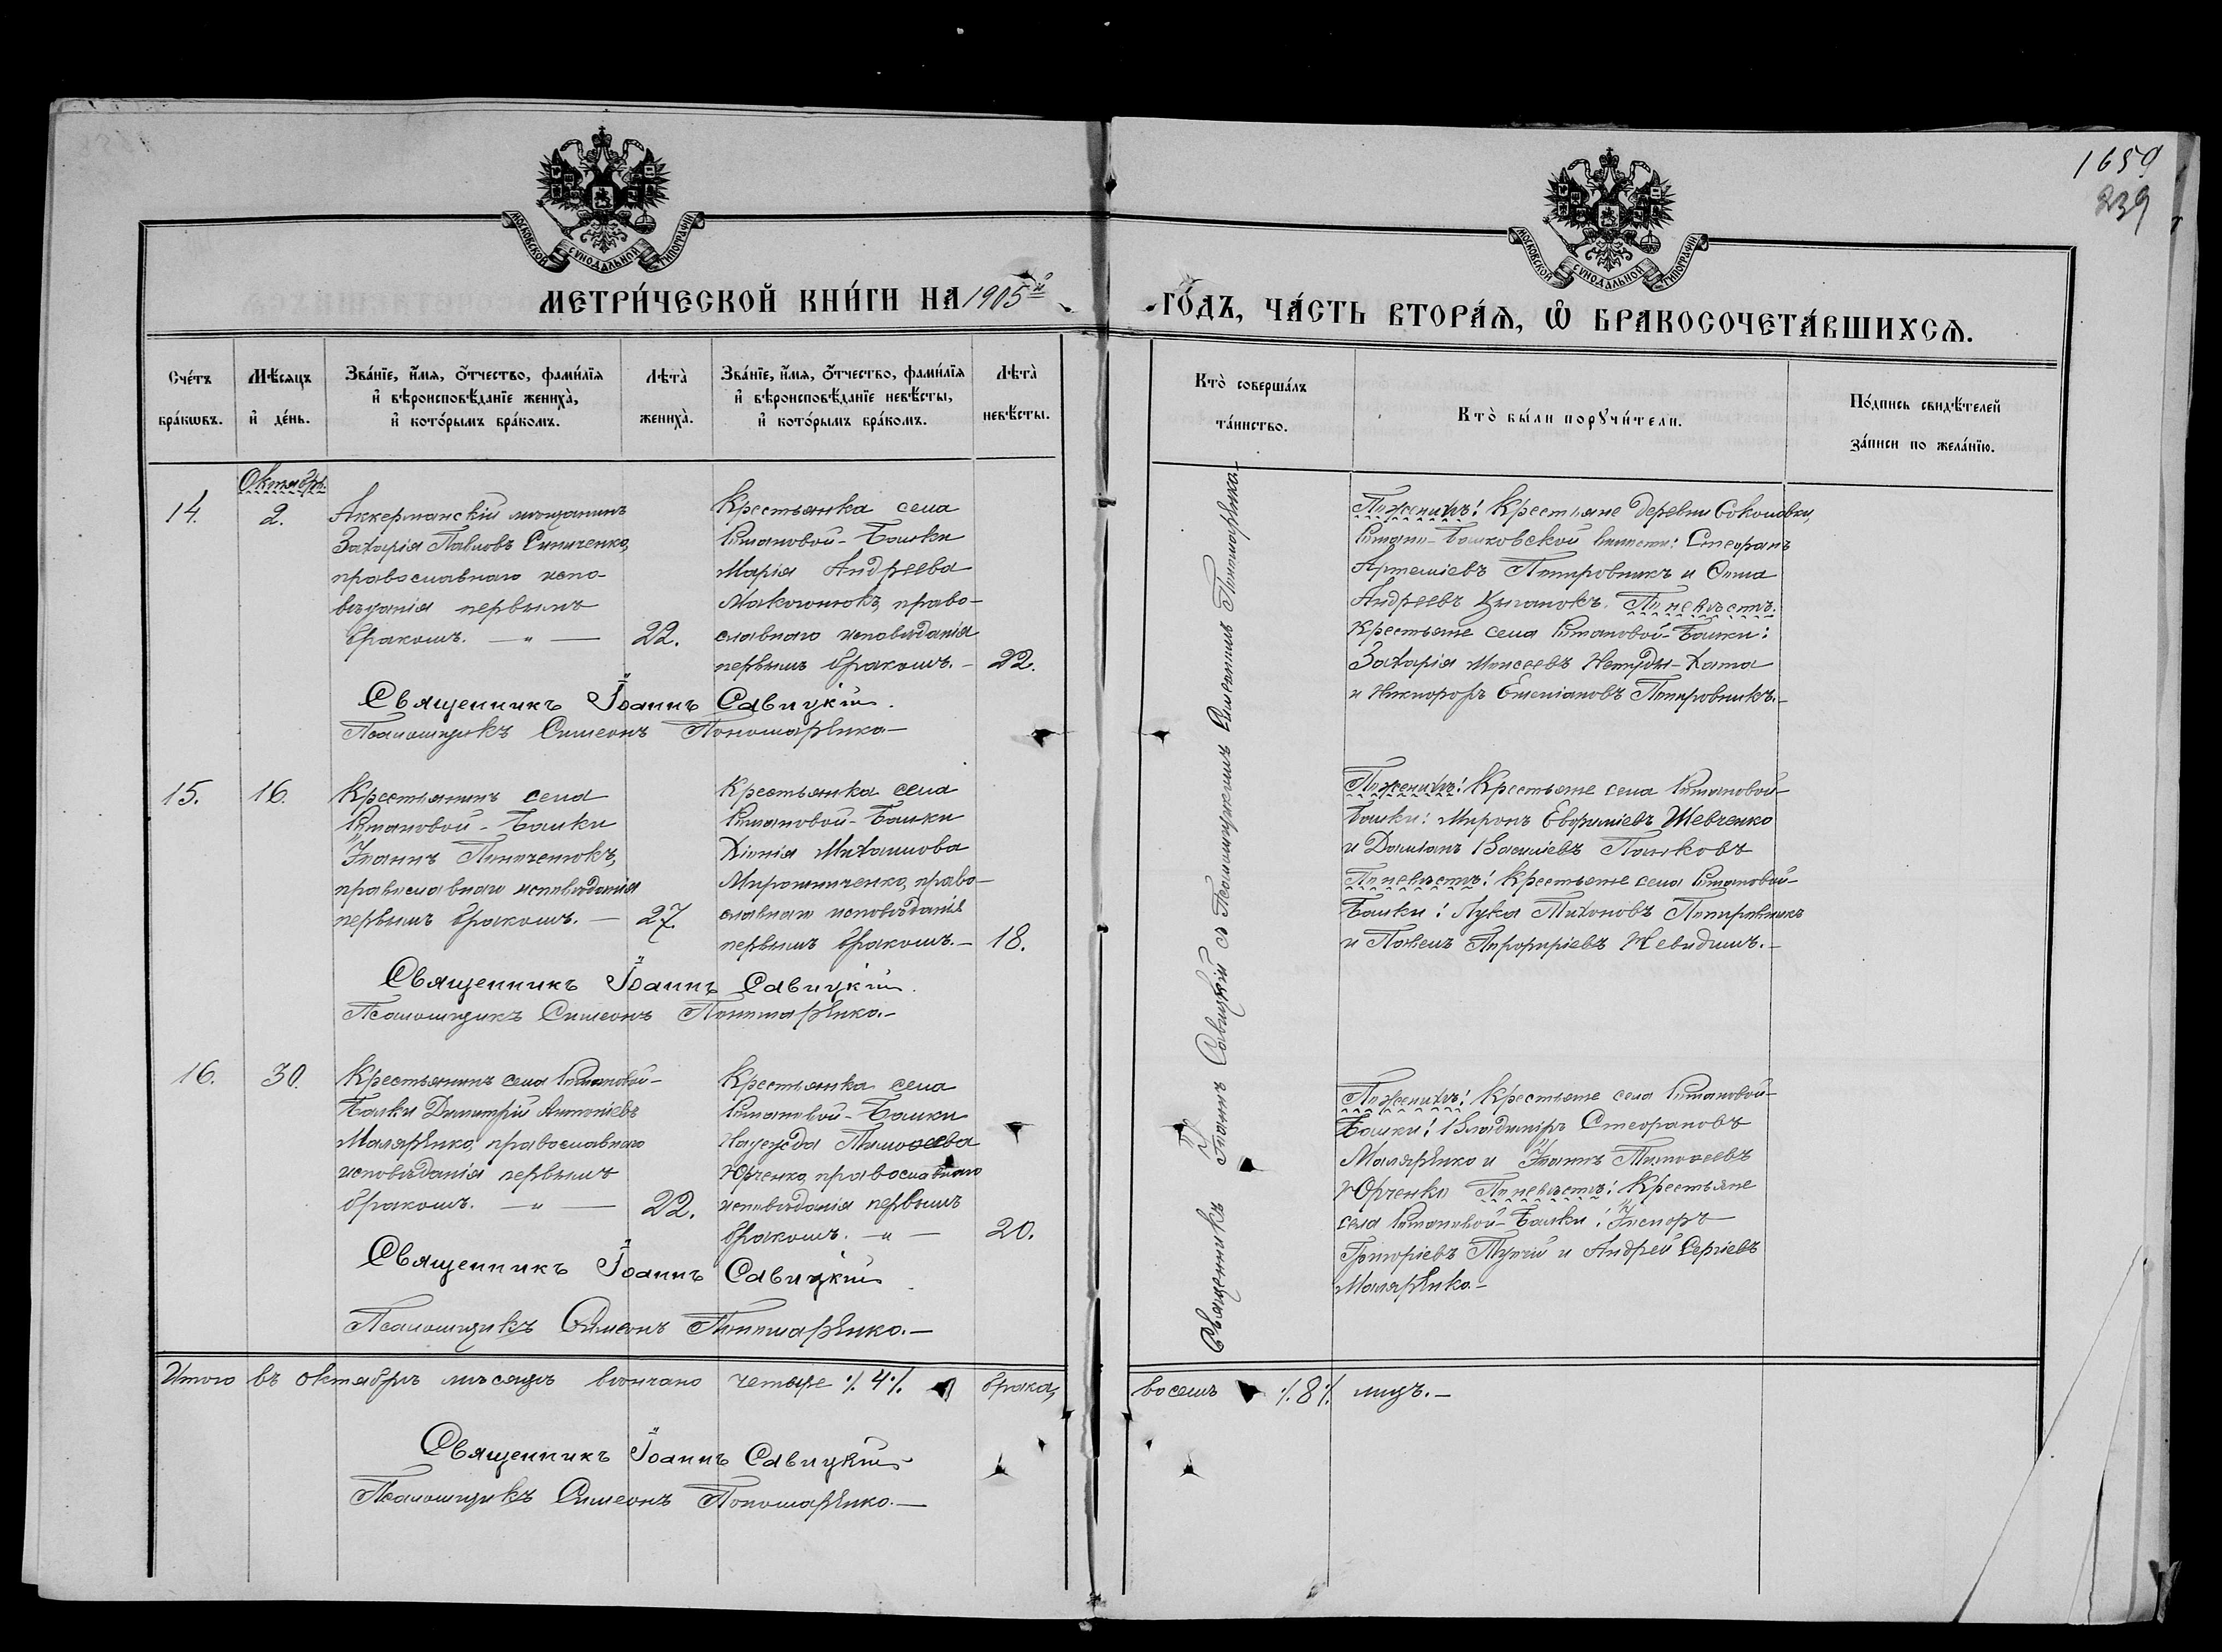 1659
239
МОСКОВСКОЙ СѴНОДАЛЬНОЙ ТИПОГРАФІИ
МОСКОВСКОЙ СѴНОДАЛЬНОЙ ТИПОГРАФІИ
МЕТРИ́ЧЕСКОЙ КНИ́ГИ НА 1905й
ГО́ДЪ, ЧА́СТЬ ВТОРА́Ѧ, Ѽ БРАКОСОЧЕТА́ВШИХСѦ.
Сче́тъ бра́кѡвъ.
Мѣ́сяцъ и҆ де́нь.
Зва́нїе, и҆́мя, ѻ҆́тчество, фами́лїя и҆ вѣроисповѣ́данїе жениха̀, и҆ кото́рымъ бра́комъ.
Лѣта̀ жениха̀.
Зва́нїе, и҆́мя, ѻ҆́тчество, фами́лїя и҆ вѣроисповѣ́данїе невѣ́сты, и҆ кото́рымъ бра́комъ.
Лѣта̀ невѣ́сты.
Кто̀ соверша́лъ та́инство.
Кто̀ бы́ли порꙋчи́тели.
По́дпись свидѣ́телей за́писи по жела́нїю.
Октябрь.
14.
2.
Аккерманскій мѣщанинъ
Захарія Павловъ
православнаго испо-
вѣданія первымъ
бракомъ. — „ —
22.
Крестьянка села
Гитановой-Балки
Марія Андреева
Макогонюкъ, право-
славнаго исповѣданія
первымъ бракомъ. —
22.
По женихѣ: Крестьяне деревни Соколовки,
Стефанъ
Артеміевъ Питировникъ и Ѳома
Андреевъ Цыганокъ. По невѣстѣ:
Крестьяне села Гитановой-Балки:
Захарія Моисеевъ Непуды-Хата
и Никифоръ Емеліановъ Питировникъ. —
Священникъ Іоаннъ Савицкій.
Псаломщикъ Симеонъ Пономаренко —
15.
16.
Крестьянинъ села
Гитановой-Балки
Іоаннъ
православнаго исповѣданія
первымъ бракомъ. —
27.
Крестьянка села
Гитановой-Балки
Хіонія Михаилова
Мирошниченко, право-
славнаго исповѣданія
первымъ бракомъ. —
18.
По женихѣ: Крестьяне села Гитановой-
Балки: Миронъ Евфиміевъ Шевченко
и Даміанъ Василіевъ Панковъ
По невѣстѣ: Крестьяне села Гитановой-
Балки: Лука Тихоновъ Питировникъ
и Павелъ Порфиріевъ Невидимъ. —
Священникъ Іоаннъ Савицкій.
Псаломщикъ Симеонъ Пономаренко. —
16.
30.
Крестьянинъ села Гитановой-
Балки Димитрій Антоніевъ
Маляренко, православнаго
исповѣданія первымъ
бракомъ. — „ —
22.
Крестьянка села
Гитановой-Балки
Надежда Тимоѳеева
Юрченко, православнаго
исповѣданія первымъ
бракомъ. — „ —
20.
По женихѣ: Крестьяне села Гитановой-
Балки: Владиміръ Стефановъ
Маляренко и Іоаннъ Тимоѳеевъ
Юрченко По невѣстѣ: Крестьяне
села Гитановой-Балки:
Григоріевъ и Андрей Сергіевъ
Маляренко. —
Священникъ Іоаннъ Савицкій
Псаломщикъ Симеонъ Пономаренко. —
Священникъ Іоаннъ Савицкій съ Псаломщикомъ Симеономъ Пономаренко. —
Итого въ октябрѣ мѣсяцѣ вѣнчано четыре ./. 4 ./. брака, восемь ./. 8 ./. лицъ. —
Священникъ Іоаннъ Савицкій
Псаломщикъ Симеонъ Пономаренко. —